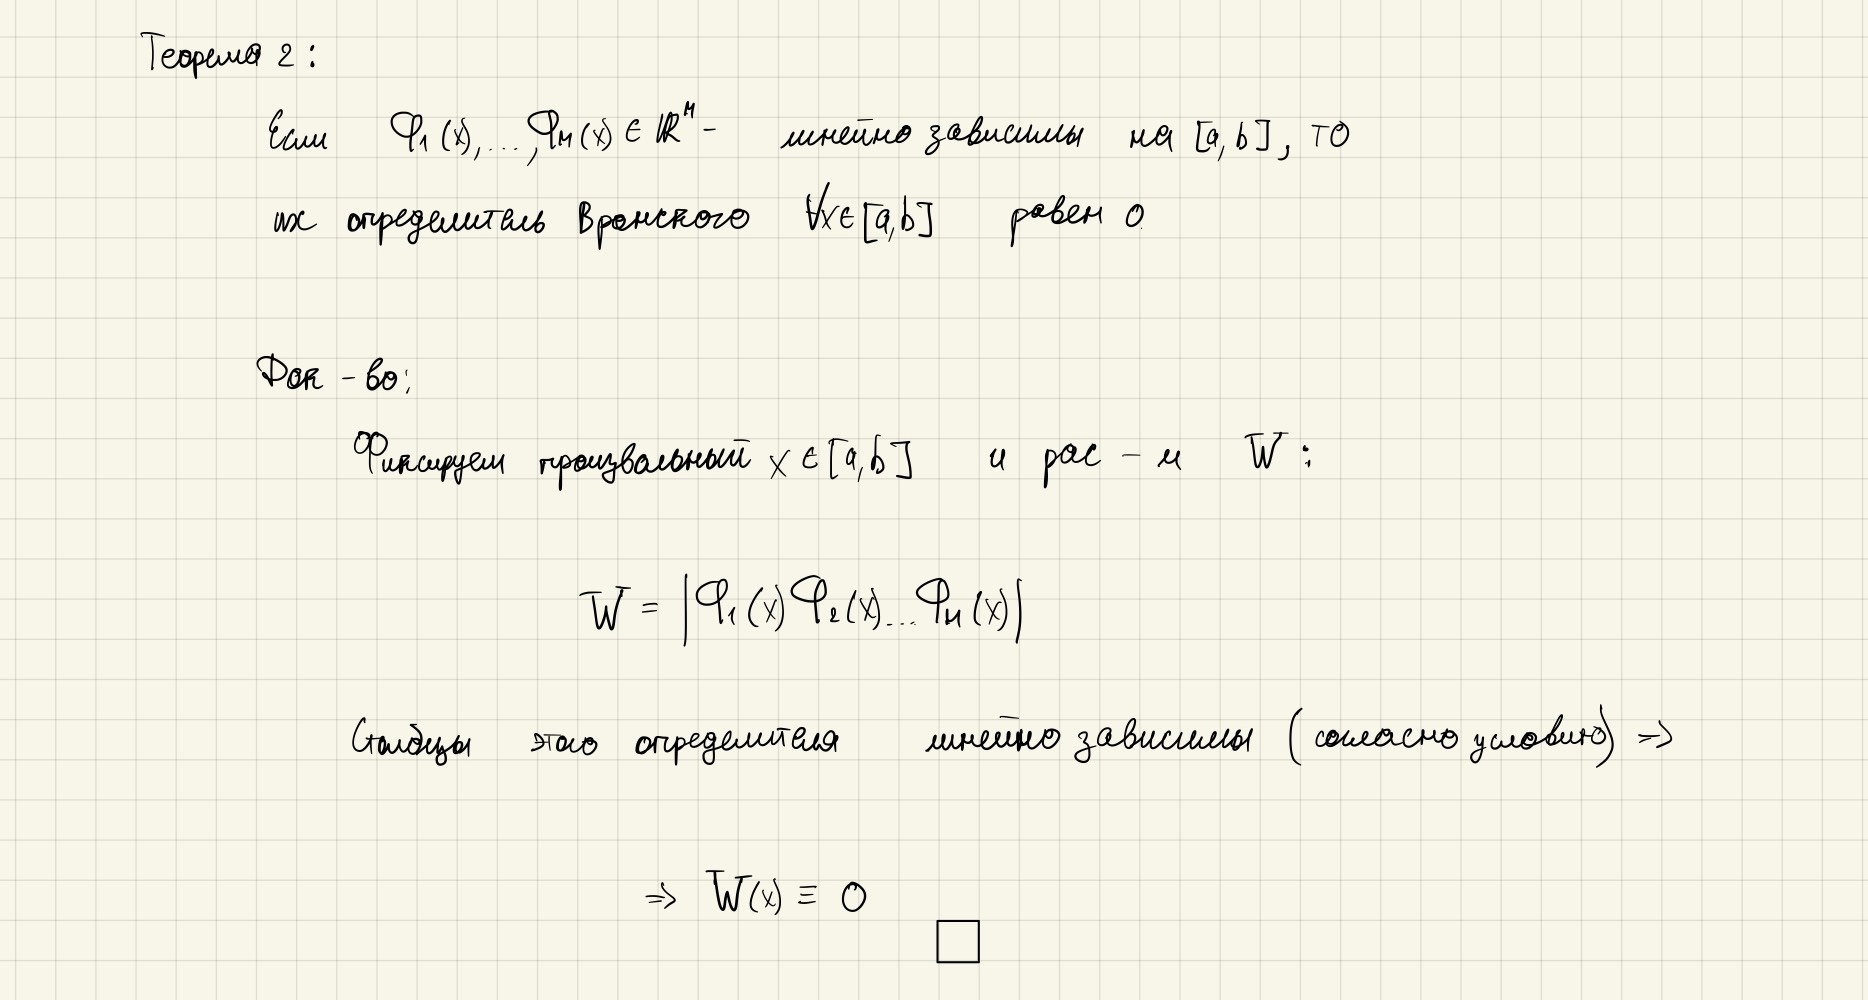 Теорема 2:
Если φ₁(x),...,φₙ(x) ∈ ℝⁿ - линейно зависимы на [a,b], то
их определитель Вронского ∀x∈[a,b] равен 0
Док-во:
Фиксируем произвольный x ∈ [a,b] и рас-м W:
W = |φ₁(x) φ₂(x)...φₙ(x)|
Столбцы этого определителя линейно зависимы (согласно условию) =>
=> W(x) ≡ 0
□